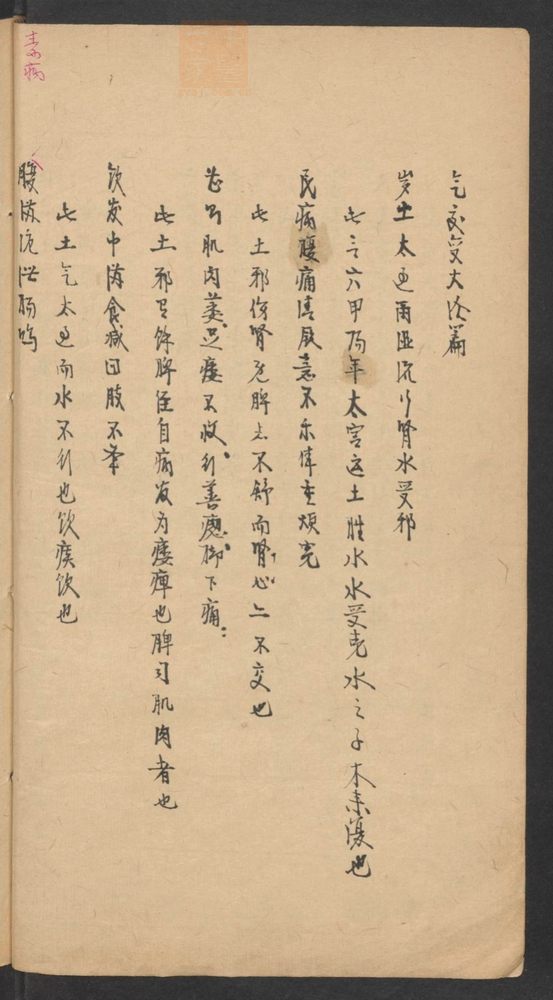 气交变大论篇
岁土太过雨湿流行肾水受邪
此言六甲阳年太宫运土胜水水受克水之子木来复也
民病腹痛清厥意不乐体重烦冤
此土邪伤肾克脾志不舒而肾心二不交也
甚则肌肉萎足痿不收行善瘛脚下痛
此土邪有余脾经自病发为痿痹也脾司肌肉者也
饮发中满食减四肢不举
此土气太过而水不行也饮痰饮也
腹满溏泄肠鸣